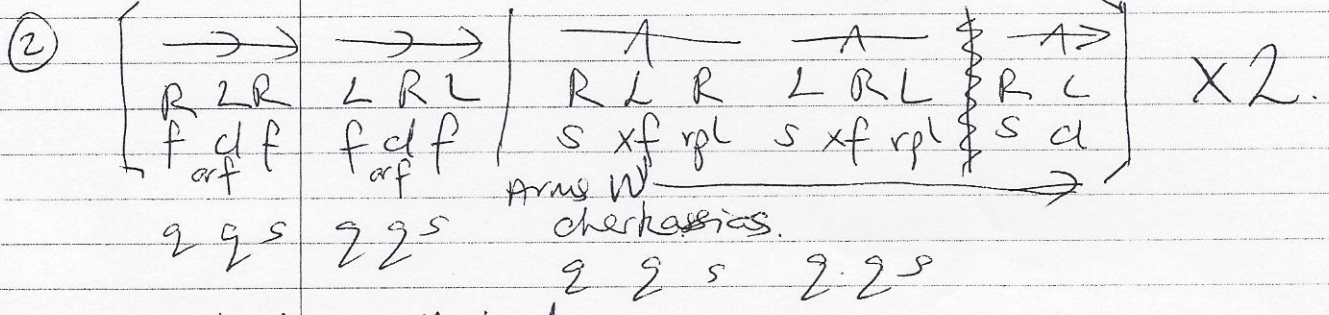 ② R L R L R L R L R L R L R L X2.
f d f f d f s xf rpl s xf rpl s d
orf orf Arms W
cherkassias.
q q s q q s
q q s q. q s